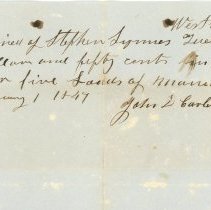 West
ived of Stephen Symmes Twe
llars and fifty cents for
or five Loads of Manure
uary 1 1847
John L Carl